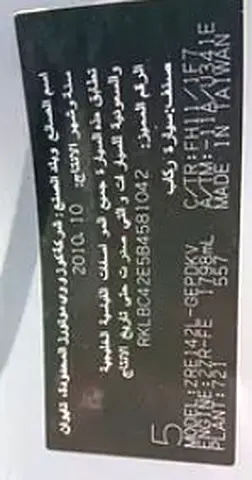 اسم الصانع وبلد الصنع: شركة كوزوي موتورز المحدودة، تايوان
سنة وشهر الإنتاج: 2010.10
تطابق هذه السيارة جميع المواصفات القياسية الخليجية
والسعودية للسيارات والتي صدرت حتى تاريخ الإنتاج
الرقم المميز: RKLBC42E5B4581042
صنف: سيارة ركاب
5
MODEL: ZRE142L-GEPDKV
ENGINE: 2ZR-FE 1798mL
PLANT: 721 557
C/TR: FH11/1F7
A/TM: -11A/U341E
MADE IN TAIWAN